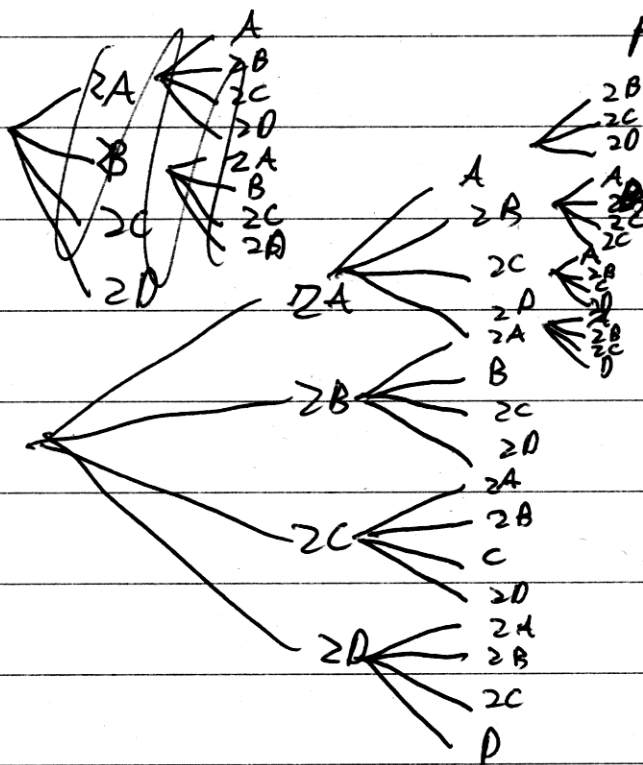 2A
B
2C
2D
A
2B
2C
2D
2A
B
2C
2D
2A
2B
2C
2D
A
2B
2C
2D
2A
B
2C
2D
2A
2B
C
2D
2A
2B
2C
D
2B
2C
2D
A
2C
2C
A
2B
C
2D
A
2B
2C
D